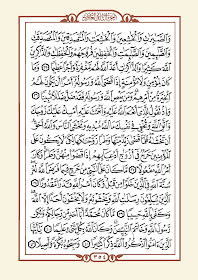 وَالصّٰبِرِيْنَ وَالصّٰبِرٰتِ وَالْخٰشِعِيْنَ وَالْخٰشِعٰتِ وَالْمُتَصَدِّقِيْنَ وَالْمُتَصَدِّقٰتِ
وَالصَّآئِمِيْنَ وَالصّٰٓئِمٰتِ وَالْحٰفِظِيْنَ فُرُوْجَهُمْ وَالْحٰفِظٰتِ وَالذّٰكِرِيْنَ
اللّٰهَ كَثِيْرًا وَّالذّٰكِرٰتِ اَعَدَّ اللّٰهُ لَهُمْ مَّغْفِرَةً وَّاَجْرًا عَظِيْمًا وَمَا
كَانَ لِمُؤْمِنٍ وَّلَا مُؤْمِنَةٍ اِذَا قَضَى اللّٰهُ وَرَسُوْلُهٗٓ اَمْرًا اَنْ يَّكُوْنَ لَهُمُ
الْخِيَرَةُ مِنْ اَمْرِهِمْ وَمَنْ يَّعْصِ اللّٰهَ وَرَسُوْلَهٗ فَقَدْ ضَلَّ ضَلٰلًا مُّبِيْنًا
وَاِذْ تَقُوْلُ لِلَّذِيْٓ اَنْعَمَ اللّٰهُ عَلَيْهِ وَاَنْعَمْتَ عَلَيْهِ اَمْسِكْ عَلَيْكَ زَوْجَكَ
وَاتَّقِ اللّٰهَ وَتُخْفِيْ فِيْ نَفْسِكَ مَا اللّٰهُ مُبْدِيْهِ وَتَخْشَى النَّاسَ وَاللّٰهُ اَحَقُّ
اَنْ تَخْشٰىهُ فَلَمَّا قَضٰى زَيْدٌ مِّنْهَا وَطَرًا زَوَّجْنٰكَهَا لِكَيْ لَا يَكُوْنَ عَلَى
الْمُؤْمِنِيْنَ حَرَجٌ فِيْٓ اَزْوَاجِ اَدْعِيَآئِهِمْ اِذَا قَضَوْا مِنْهُنَّ وَطَرًا وَكَانَ اَمْرُ
اللّٰهِ مَفْعُوْلًا مَا كَانَ عَلَى النَّبِيِّ مِنْ حَرَجٍ فِيْمَا فَرَضَ اللّٰهُ لَهٗ
سُنَّةَ اللّٰهِ فِى الَّذِيْنَ خَلَوْا مِنْ قَبْلُ وَكَانَ اَمْرُ اللّٰهِ قَدَرًا مَّقْدُوْرًا
الَّذِيْنَ يُبَلِّغُوْنَ رِسٰلٰتِ اللّٰهِ وَيَخْشَوْنَهٗ وَلَا يَخْشَوْنَ اَحَدًا اِلَّا اللّٰهَ
وَكَفٰى بِاللّٰهِ حَسِيْبًا مَا كَانَ مُحَمَّدٌ اَبَآ اَحَدٍ مِّنْ رِّجَالِكُمْ وَلٰكِنْ
رَّسُوْلَ اللّٰهِ وَخَاتَمَ النَّبِيّٖنَ وَكَانَ اللّٰهُ بِكُلِّ شَيْءٍ عَلِيْمًا يٰٓاَيُّهَا
الَّذِيْنَ اٰمَنُوا اذْكُرُوا اللّٰهَ ذِكْرًا كَثِيْرًا وَّسَبِّحُوْهُ بُكْرَةً وَّاَصِيْلًا
٣٥٤